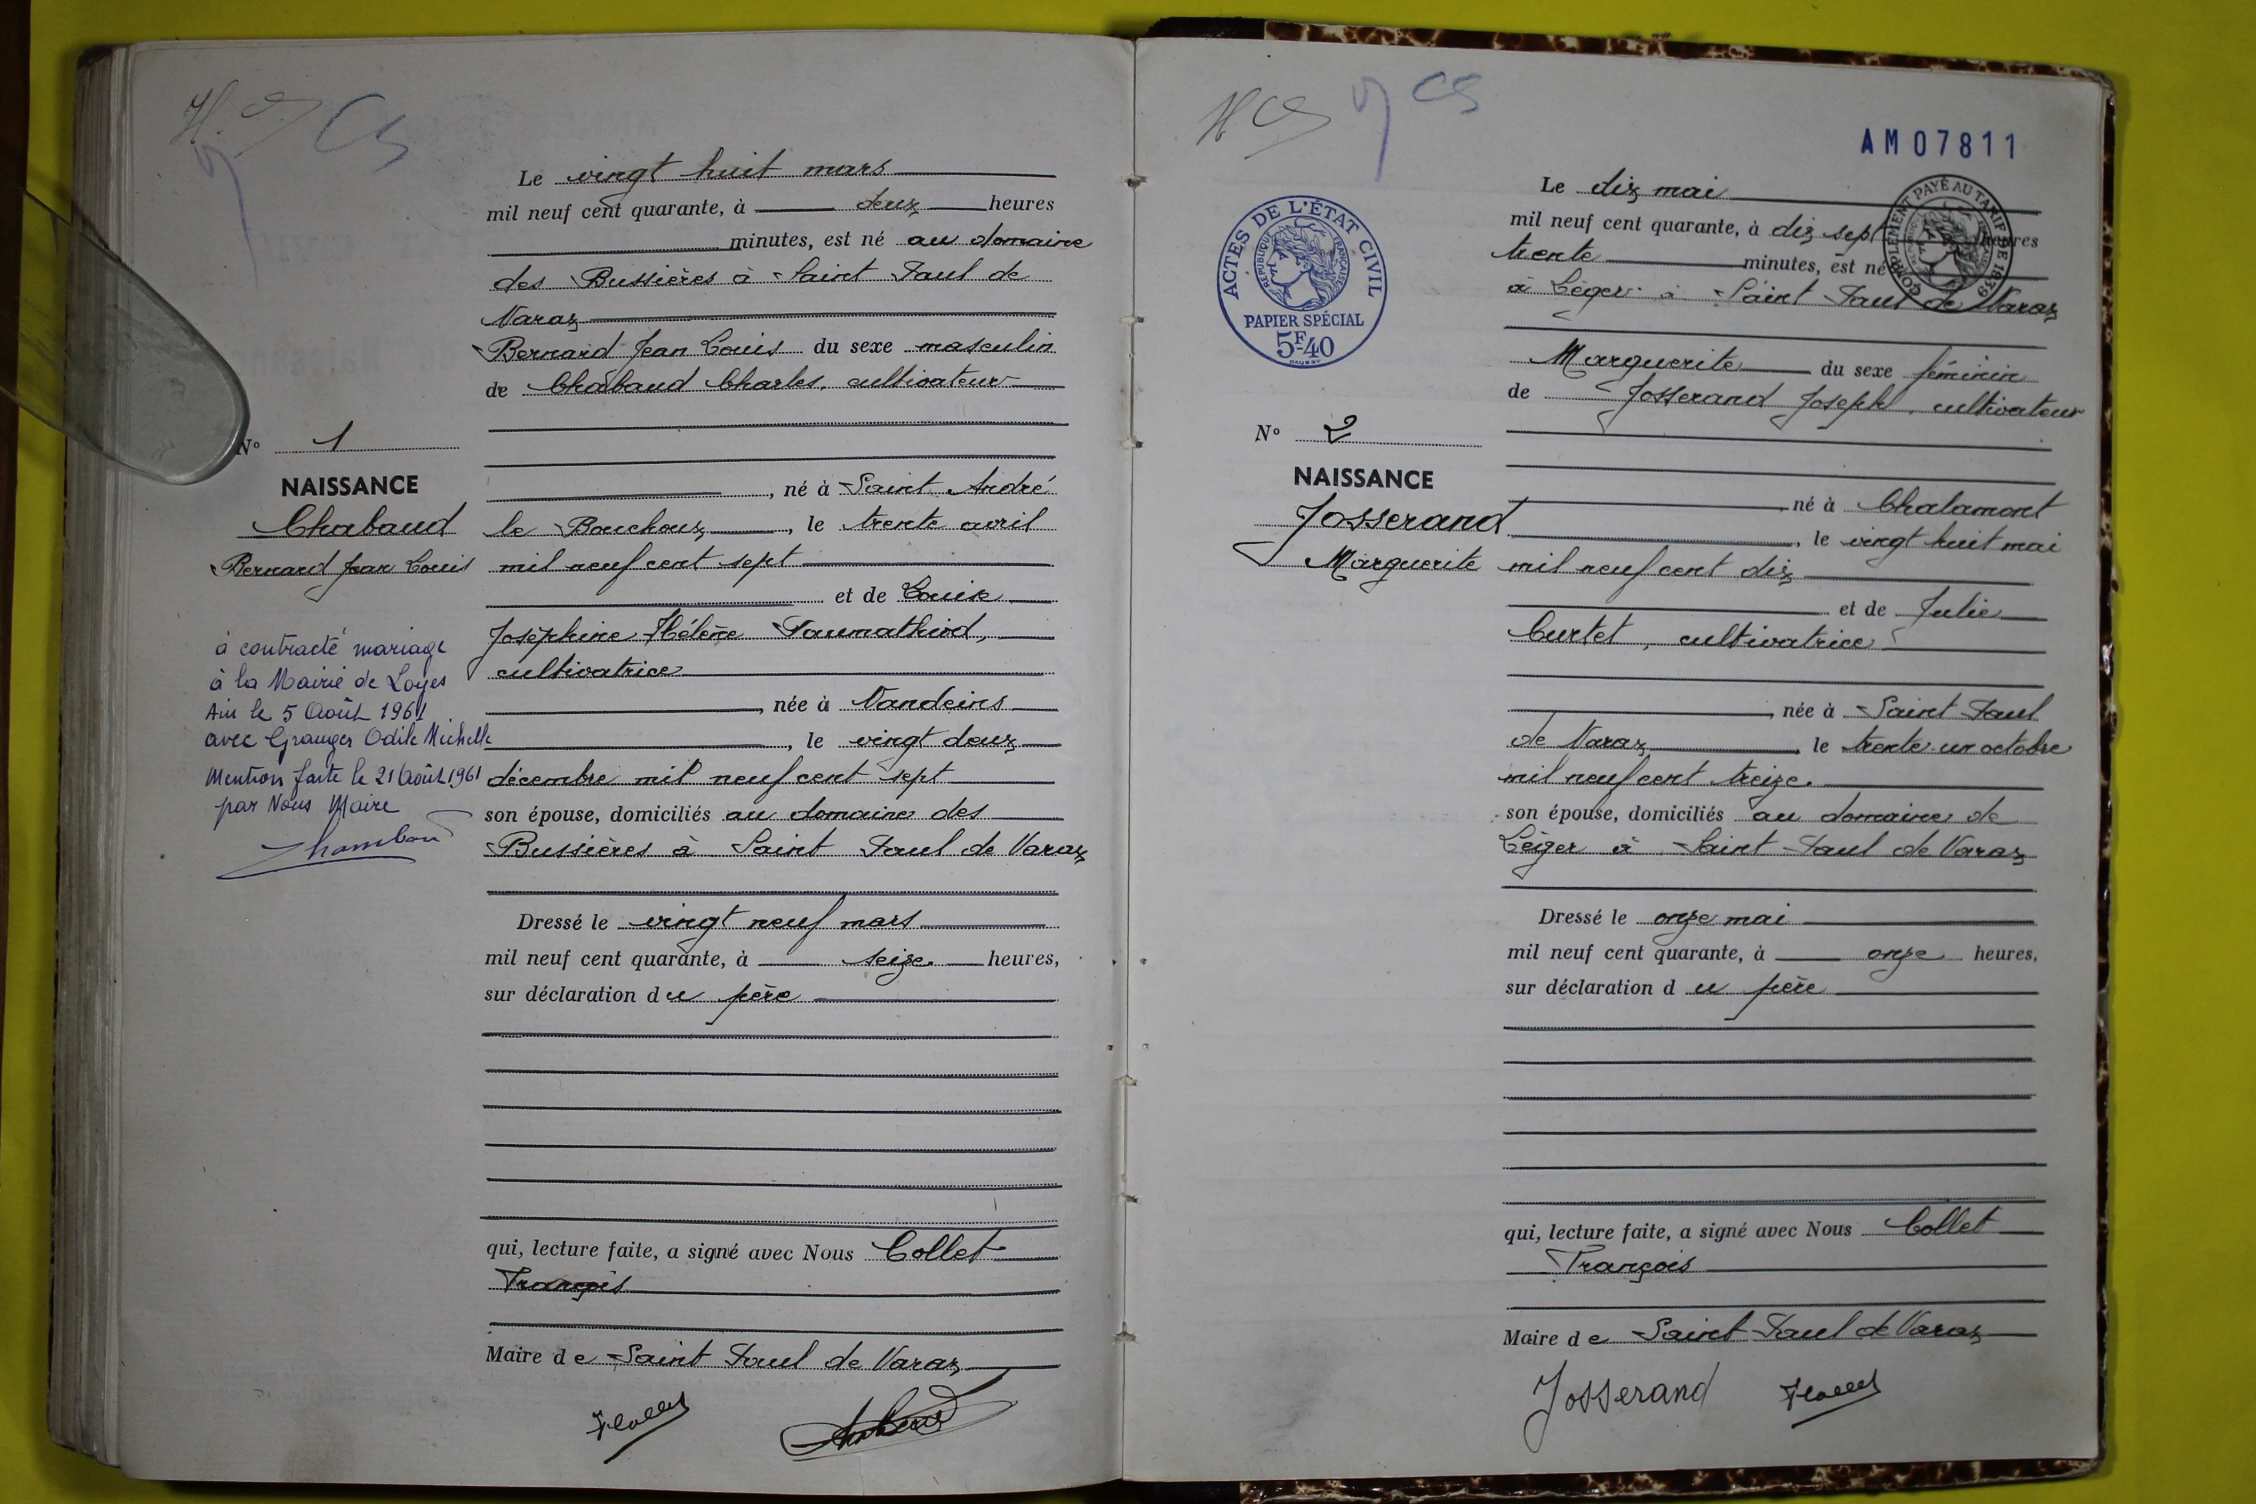 Le vingt huit mars
mil neuf cent quarante, à deux heures
minutes, est né au domaine
des Bussières à Saint Paul de
Varax
Bernard Jean Louis du sexe masculin
de Chabaud Charles, cultivateur
N° 1
NAISSANCE
Chabaud
Bernard Jean Louis
, né à Saint André
le Bouchoux, le trente avril
mil neuf cent sept
et de Louise
Joséphine Hélène Paumathiod,
cultivatrice
, née à Vandeins
, le vingt deux
décembre mil neuf cent sept
son épouse, domiciliés au domaine des
Bussières à Saint Paul de Varax
à contracté mariage
à la Mairie de Loyes
Ain le 5 Août 1961
avec Granger Odile Michelle
Mention faite le 21 Août 1961
par Nous Maire
Dressé le vingt neuf mars
mil neuf cent quarante, à seize heures,
sur déclaration du père
qui, lecture faite, a signé avec Nous Collet
François
Maire de Saint Paul de Varax
AM07811
ACTES DE L'ÉTAT CIVIL
RÉPUBLIQUE FRANÇAISE
PAPIER SPÉCIAL
5F40
COMPLÉMENT PAYÉ AU TARIF DE 1939
Le dix mai
mil neuf cent quarante, à dix sept heures
trente minutes, est né
à Léger à Saint Paul de Varax
Marguerite du sexe féminin
de Josserand Joseph, cultivateur
N° 2
NAISSANCE
Josserand
Marguerite
né à Chalamont
, le vingt huit mai
mil neuf cent dix
et de Julie
Curtet, cultivatrice
, née à Saint Paul
de Varax, le trente un octobre
mil neuf cent treize.
son épouse, domiciliés au domaine de
Léger à Saint Paul de Varax
Dressé le onze mai
mil neuf cent quarante, à onze heures,
sur déclaration du père
qui, lecture faite, a signé avec Nous Collet
François
Maire de Saint Paul de Varax
Josserand